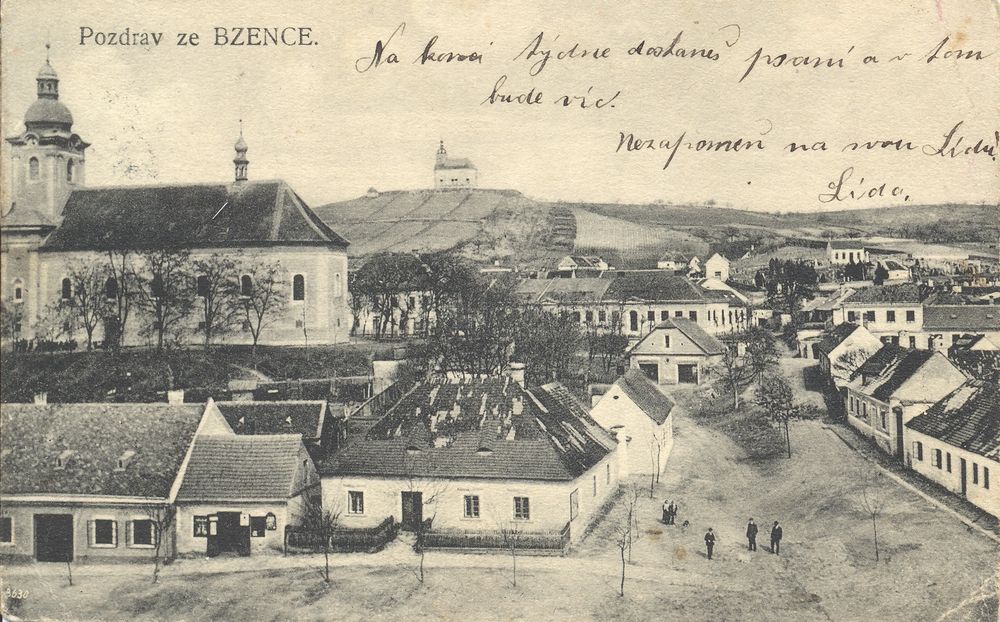 Pozdrav ze BZENCE.
Na konci týdne dostaneš psaní a v tom
bude víc.
Nezapomeň na svou Lídu.
Lída.
3630